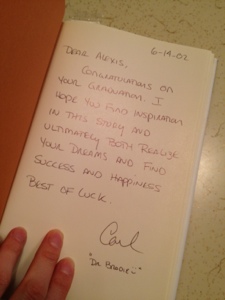 6-14-02
DEAR ALEXIS,
CONGRATULATIONS ON
YOUR GRADUATION. I
HOPE YOU FIND INSPIRATION
IN THIS STORY AND
ULTIMATELY BOTH REALIZE
YOUR DREAMS AND FIND
SUCCESS AND HAPPINESS
BEST OF LUCK.
Carl
"DR.